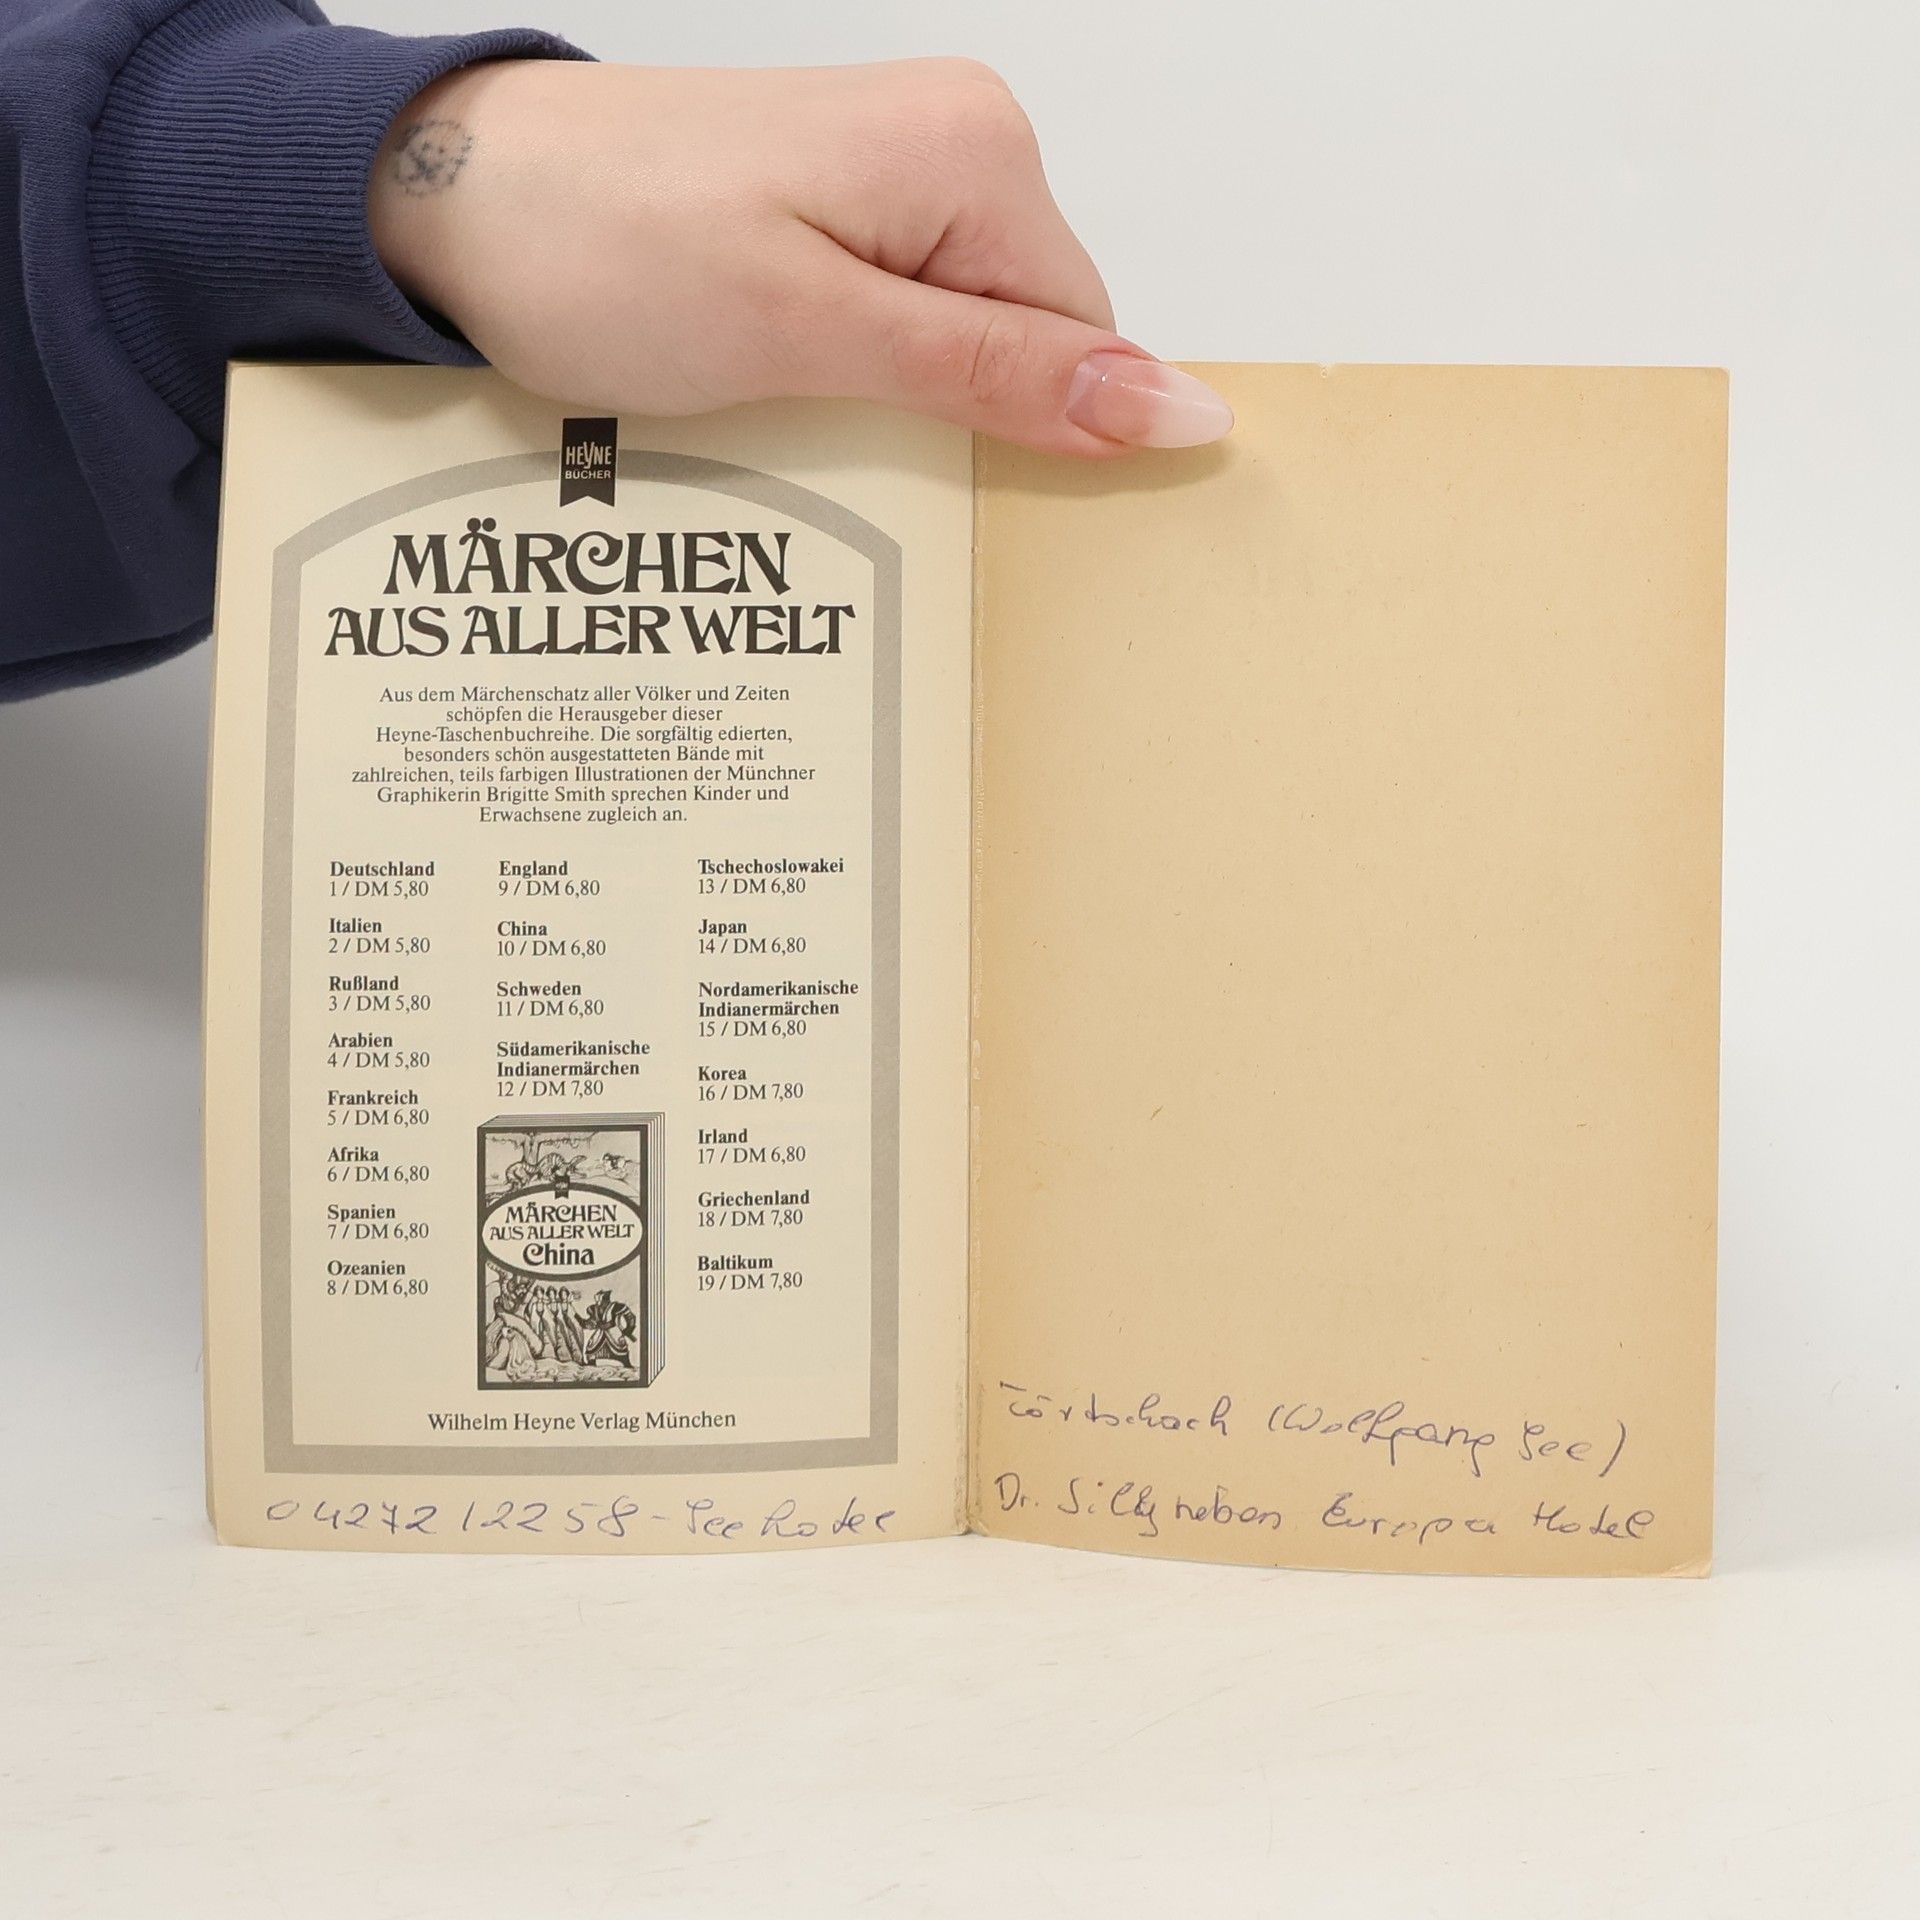 HEYNE
BÜCHER
MÄRCHEN
AUS ALLER WELT
Aus dem Märchenschatz aller Völker und Zeiten
schöpfen die Herausgeber dieser
Heyne-Taschenbuchreihe. Die sorgfältig edierten,
besonders schön ausgestatteten Bände mit
zahlreichen, teils farbigen Illustrationen der Münchner
Graphikerin Brigitte Smith sprechen Kinder und
Erwachsene zugleich an.
Deutschland
1 / DM 5,80
Italien
2 / DM 5,80
Rußland
3 / DM 5,80
Arabien
4 / DM 5,80
Frankreich
5 / DM 6,80
Afrika
6 / DM 6,80
Spanien
7 / DM 6,80
Ozeanien
8 / DM 6,80
England
9 / DM 6,80
China
10 / DM 6,80
Schweden
11 / DM 6,80
Südamerikanische
Indianermärchen
12 / DM 7,80
MÄRCHEN
AUS ALLER WELT
China
Tschechoslowakei
13 / DM 6,80
Japan
14 / DM 6,80
Nordamerikanische
Indianermärchen
15 / DM 6,80
Korea
16 / DM 7,80
Irland
17 / DM 6,80
Griechenland
18 / DM 7,80
Baltikum
19 / DM 7,80
Wilhelm Heyne Verlag München
04272 / 2258 - Seehotel
(Wolfgang See)
Dr. Silly neben Europa Hotel